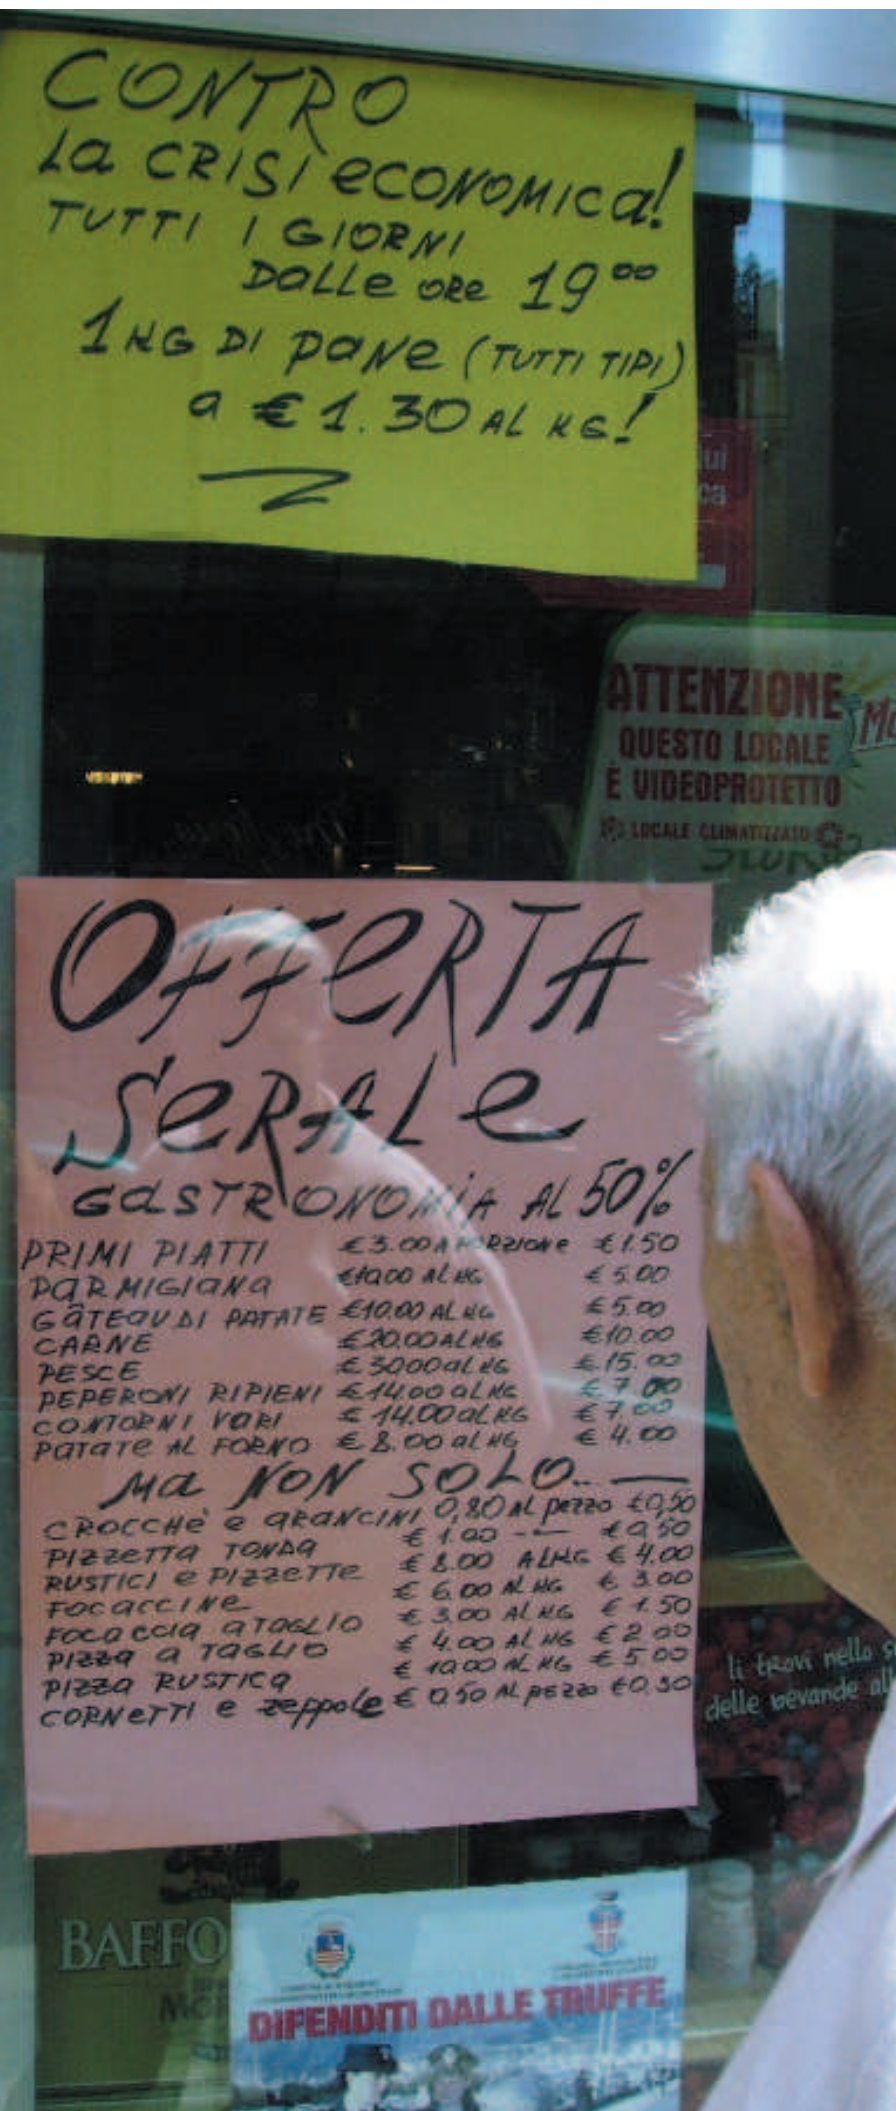 CONTRO
La CRISI eCONOMICa!
TUTTI I GIORNI
DaLLe oRe 19⁰⁰
1 KG DI paNe (TUTTI TIPI)
a € 1.30 AL KG!
lui
ca
ATTENZIONE
QUESTO LOCALE
È VIDEOPROTETTO
LOCALE CLIMATIZZATO
OFFeRTA
SeRALe
GaSTRONOMiA AL 50%
PRIMI PIATTI €3.00 A PORZIONe €1.50
PaRMIGIaNa €10.00 AL KG €5.00
GâTeaU DI PATATE €10.00 AL KG €5.00
CARNE €20.00 AL KG €10.00
PESCE €30.00 aL KG €15.00
PEPERONI RIPIENI €14.00 aL KG €7.00
CONTORNI VaRI €14.00 aL KG €7.00
PaTaTe AL FORNO €8.00 aL KG €4.00
Ma NON SOLO...
CROCCHè e aRANCINI 0,80 AL pezzo €0,50
PIZZeTTA TONDa €1.00 -- €0,50
RUSTICI e PIZZeTTe €8.00 AL KG €4.00
FOCaCCINe €6.00 AL KG €3.00
FOCaCCIa a TaGLIO €3.00 AL KG €1.50
PIZZa a TaGLIO €4.00 AL KG €2.00
PIZZa RUSTICa €10.00 AL KG €5.00
CORNeTTI e zeppole €0.50 AL pezzo €0.30
li trovi nello s
delle bevande al
BAFFO
DIFENDITI DALLE TRUFFE